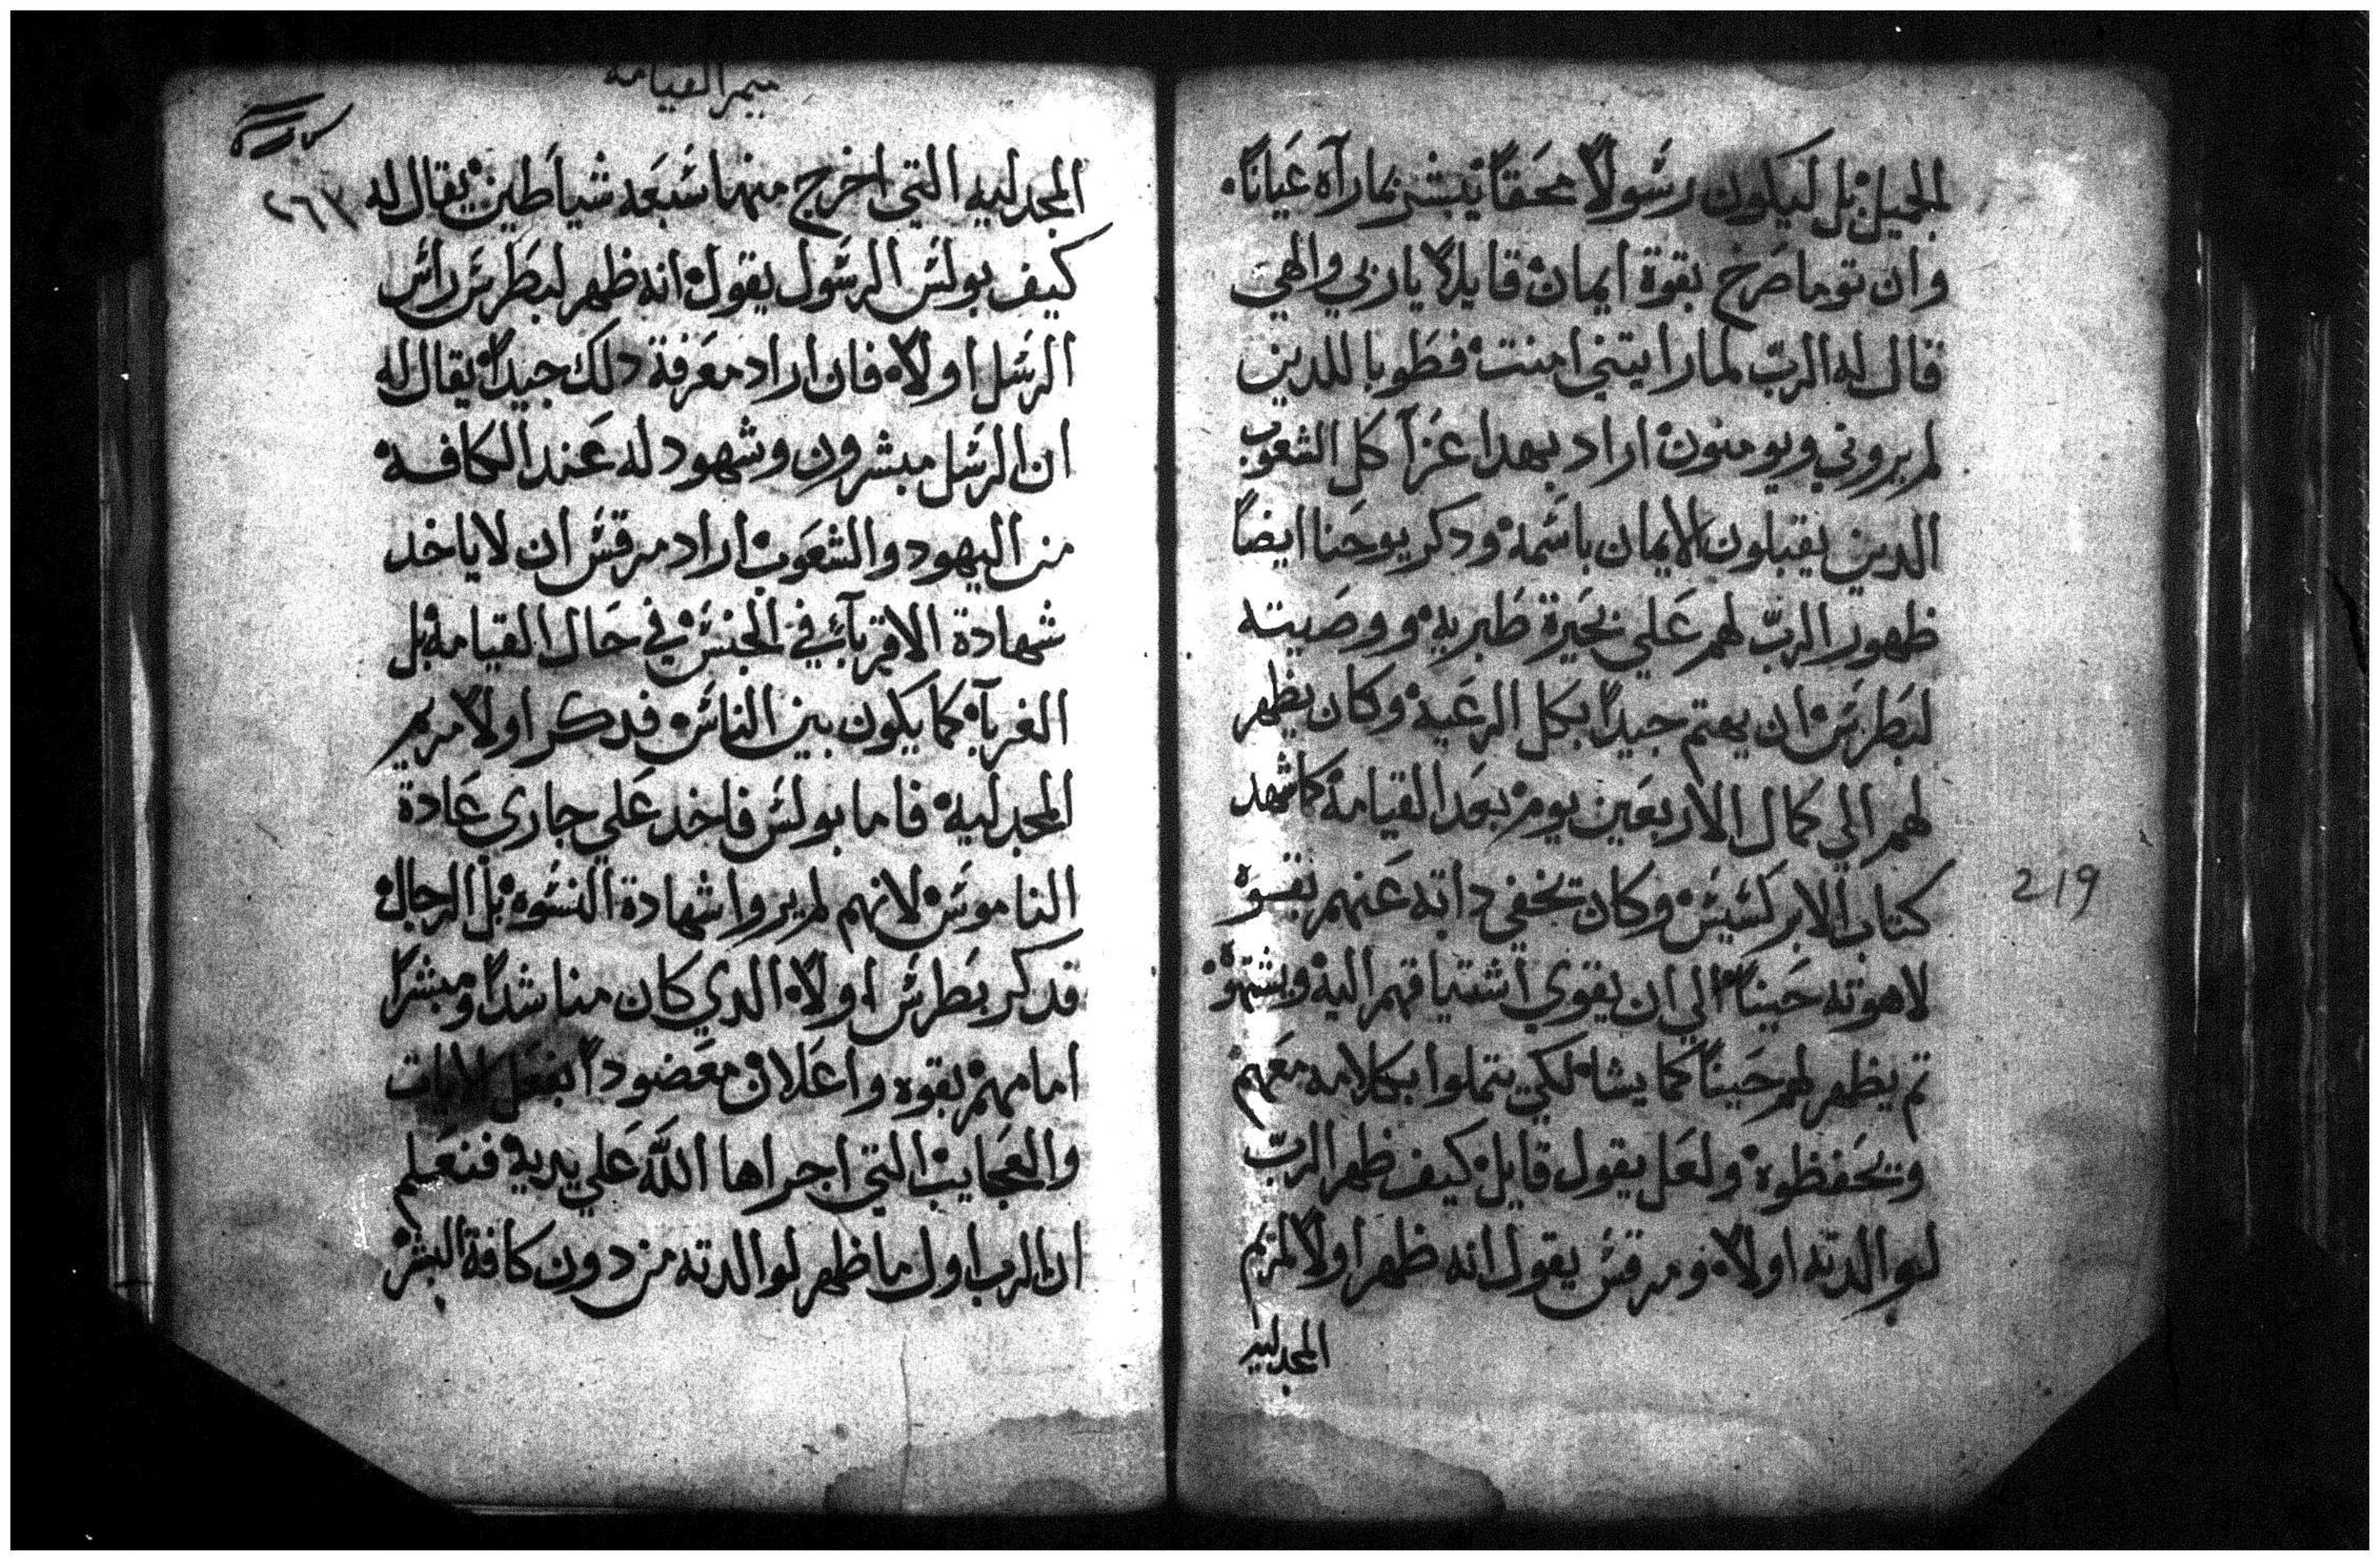 الجميل بل ليكون رسولاً محققاً يبشر بما رآه عياناً.
وان توما صرخ بقوة ايمان قايلاً ياربي والهي
قال له الربّ لما رايتني امنت فطوبا للدين
لم يروني ويومنون اراد بهدا عزآ كل الشعوب
الدين يقبلون الايمان باسمه ودكر يوحنا ايضاً
ظهور الربّ لهم علي بحيرة طبريه ووصيته
لبطرس ان يهتم جيداً بكل الرعيه وكان يظهر
لهم الي كمال الاربعين يوم بعد القيامه كما شهد
كتاب الابركسيس وكان يخفي داته عنهم بقوة
لاهوته حيناً الي ان يقوي اشتياقهم اليه ويشتهوه.
تم يظهر لهم حيناً كما يشا لكي يتملوا بكلامه معهم
ويحفظوه ولعل يقول قايل كيف ظهر الربّ
لوالدته اولاً ومرقس يقول انه ظهر اولاً لمريم
المجدليه
219
ميمر القيامه
٢٦٧
المجدليه التي اخرج منها سبعه شياطين يقال له
كيف بولس الرسول يقول انه ظهر لبطرس راس
الرسل اولاً فان اراد معرفة دلك جيداً يقال له
ان الرسل مبشرون وشهود له عند الكافه
من اليهود والشعوب اراد مرقس ان لا ياخد
شهادة الاقربآء في الجنس في حال القيامه بل
الغربآء كما يكون بين الناس فدكر اولاً مريم
المجدليه فاما بولس فاخد علي جاري عادة
الناموس لانهم لم يروا شهادة النسوه بل الرجال
فدكر بطرس اولاً الدي كان مناشداً ومبشراً
امامهم بقوه واعلان معضوداً بفعل الايات
والعجايب التي اجراها اللّه علي يديه فنعلم
ان الرب اول ما ظهر لوالدته من دون كافة البشر